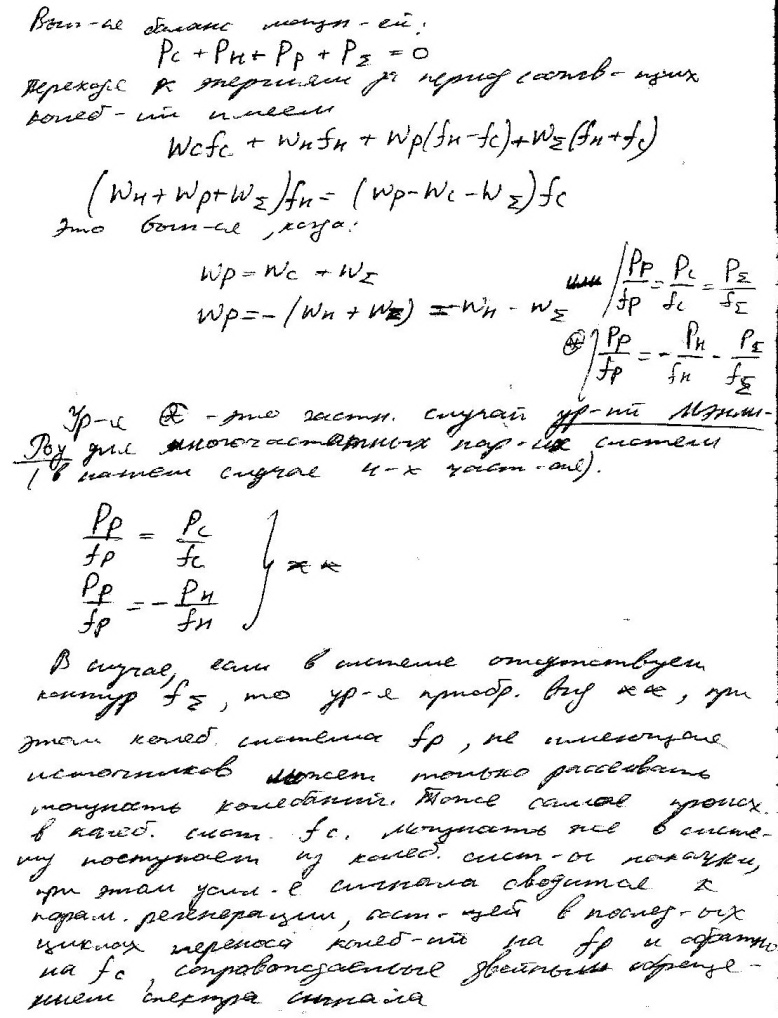 Вып-ие баланс мощн-ей:
Pc + Pн + Pp + PΣ = 0
переходя к энергиям за период соотв-ющих
колеб-ий имеем
Wcfc + Wнfн + Wp(fн-fc)+WΣ(fн+fc)
(Wн+Wp+WΣ)fн = (Wp-Wc-WΣ)fc
Это вып-ся, когда:
Wp = Wc + WΣ
Wp = -(Wн + WΣ) = -Wн - WΣ
или Pp/fp = Pc/fc = PΣ/fΣ
⊛ Pp/fp = -Pн/fн - PΣ/fΣ
Ур-я ⊛ - это частн. случай ур-ий Мэнли-
Роу для многочастотных пар-их систем
(в нашем случае 4-х част-ые).
Pp/fp = Pc/fc
Pp/fp = -Pн/fн } **
В случае, если в системе отсутствует
контур fΣ, то ур-я приобр. вид **, при
этом колеб. система fp, не имеющая
источников может только рассеивать
мощность колебаний. Тоже самое происх.
в колеб. сист. fc. Мощность же в систе-
му поступает из колеб. сист-ы накачки,
при этом усил-е сигнала сводится к
парам. регенерации, сост-щей в послед-ых
циклах переноса колеб-ий на fp и обратно
на fc, сопровождаемые двойным обраще-
нием спектра сигнала